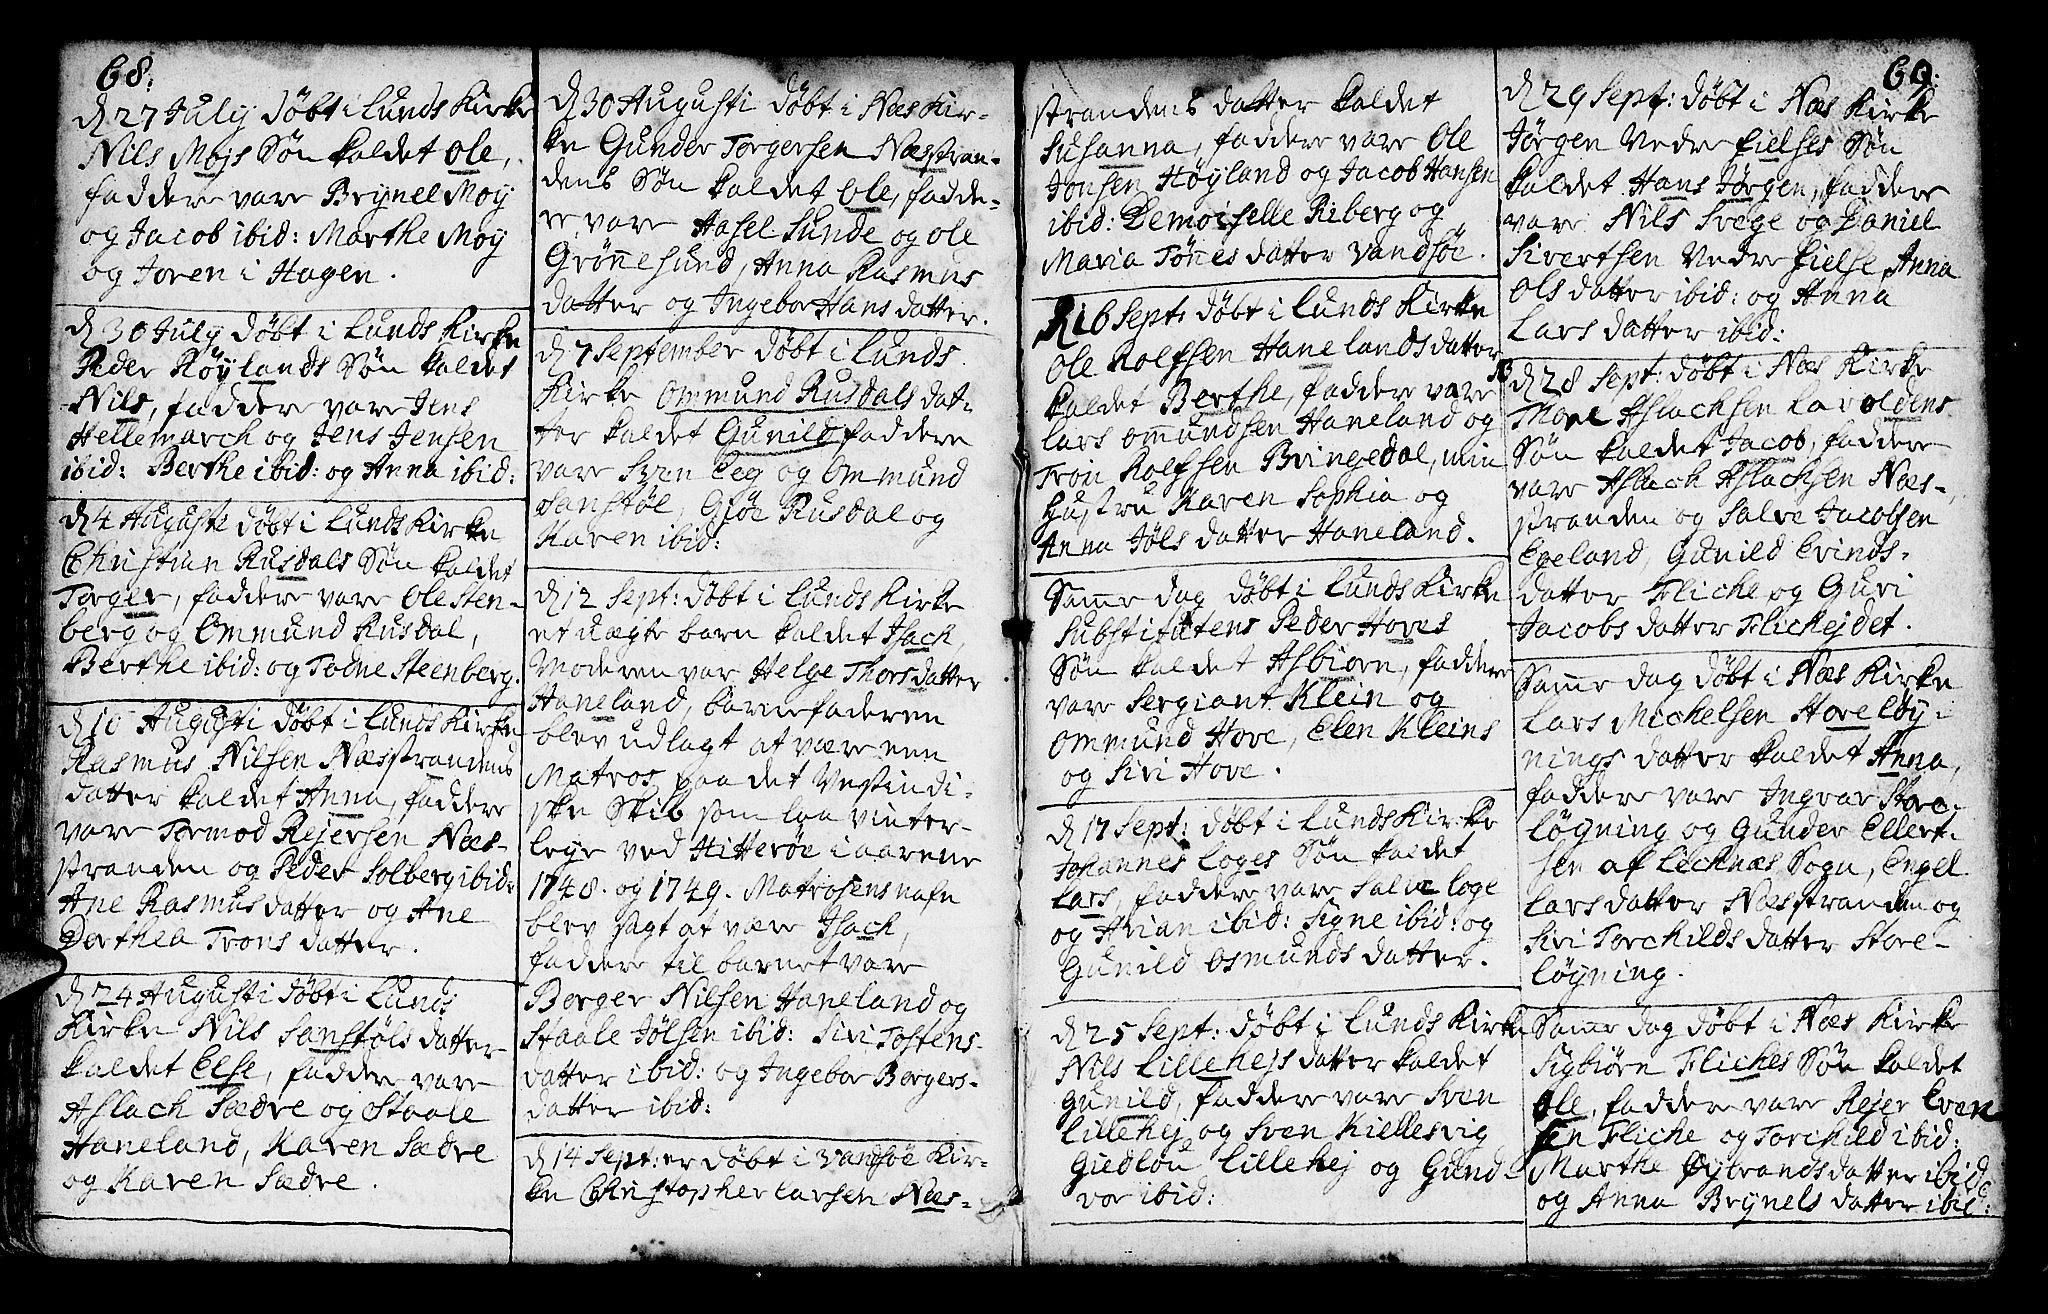 68.
d 27 July Döbt i Lunds Kirke
Nils Mojs Sön kaldet Ole,
faddere vare Brynel Moy
og Jacob ibid: Marthe Moy
og Joren i Hagen.
d 30 July döbt i Lunds Kirke
Peder Röylands Sön kaldet
Nils, faddere vare Jens
Hellemarch og Jens Jensen
ibid: Berthe ibid: og Anna ibid:
d 4 Auguste döbt i Lunds Kirke
Christian Rusdals Sön kaldet
Torger, faddere vare Ole Sten-
berg og Ommund Rusdal,
Berthe ibid: og Todne Steenberg.
d 10 Augusti döbt i Lunds Kirke
Rasmus Nilsen Næsstrandens
datter kaldet Anna, faddere
vare Tormod Rejersen Næs-
stranden og Peder Solberg ibid:
Ane Rasmus datter og Ane
Dorthea Trons datter.
d 24 Augusti döbt i Lunds
Kirke Nils Sanstöls datter
kaldet Else, faddere vare
Aslach Sædre og Staale
Haneland, Karen Sædre
og Karen Sædre.
d 30 Augusti döbt i Næs Kir-
ke Gunder Torgersen Næsstran-
dens Sön kaldet Ole, fadde-
re vare Hasel Sunde og Ole
Grönnesund, Anna Rasmus
datter og Ingebor Hans datter.
d 7 September döbt i Lunds
Kirke Ommund Rusdals dat-
ter kaldet Gunild faddere
vare Sven Eeg og Ommund
Sanstöe, Giöe Rusdal og
Karen ibid:
d 12 Sept: döbt i Lunds Kirke
et uægte barn kaldet Isach,
Moderen var Helge Thorsdatter
Haneland, barnefaderen
blev udlagt at være een
Matros paa det Vestindi-
ske Skib som laa vinter-
leye ved Hitteröe i aarene
1748. og 1749. Matrosens nafn
blev sagt at være Isach,
faddere til barnet vare
Borger Nilsen Haneland og
Staale Jölsen ibid: Siri Tostens-
datter ibid: og Ingebor Borgers-
datter ibid:
d 14 Sept: er döbt i Vandsöe Kir-
ke Christopher Larsen Næs-
69.
strandens datter kaldet
Susanna, faddere vare Ole
Jonsen Höyland og Jacob Hansen
ibid: Demoiselle Riberg og
Maria Tönes datter Vandsöe.
16 Sept: döbt i Lunds Kirke
Ole Rolfsen Hanelands datter
kaldet Berthe, faddere vare
Lars Ommundsen Haneland og
Tron Rolfsen Bringedal, min
Hustru Karen Sophia og
Anna Jöls datter Haneland.
Samme dag döbt i Lunds Kirke
Substitutens Peder Hoves
Sön kaldet Asbiorn, faddere
vare Sergiant Klein og
Ommund Hove, Elen Kleins
og Siri Hove.
d 17 Sept: döbt i Lunds Kirke
Johannes Loges Sön kaldet
Lars, faddere vare Salve Loge
og Arian ibid: Signe ibid: og
Gunild Osmunds datter.
d 25 Sept: döbt i Lunds Kirke
Nils Lillehejs datter kaldet
Gunild, faddere vare Sven
Lillehej og Sven Kiellesvig
Giedlou Lillehej og Gund-
vor ibid:
d 29 Sept: döbt i Næs Kirke
Jörgen Vedre Fielses Sön
kaldet Hans Jörgen, faddere
vare Nils Svege og Daniel
Sivertsen Vedre Fielse, Anna
Ols datter ibid: og Anna
Lars datter ibid:
d 28 Sept: döbt i Næs Kirke
Aslachsen Laroldens
Sön kaldet Jacob, faddere
vare Aslach Aslachsen Næs-
stranden og Salve Jacobsen
Egeland, Gunild Evinds-
datter Fliche og Guri
Jacobs datter Flichejdet.
Samme dag döbt i Næs Kirke
Lars Michelsen Storelöy-
nings datter kaldet Anna,
faddere vare Ingvar Store-
löyning og Gunder Ellert-
sen af Lechnæs Sogn, Engel
Larsdatter Næsstranden og
Siri Torchilds datter Store-
löyning.
Samme dag döbt i Næs Kirke
Sigbiörn Fliches Sön kaldet
Ole, faddere vare Rejer Even
sen Fliche og Torchild ibid:
Marthe Öybrands datter ibid:
og Anna Brynels datter ibid: